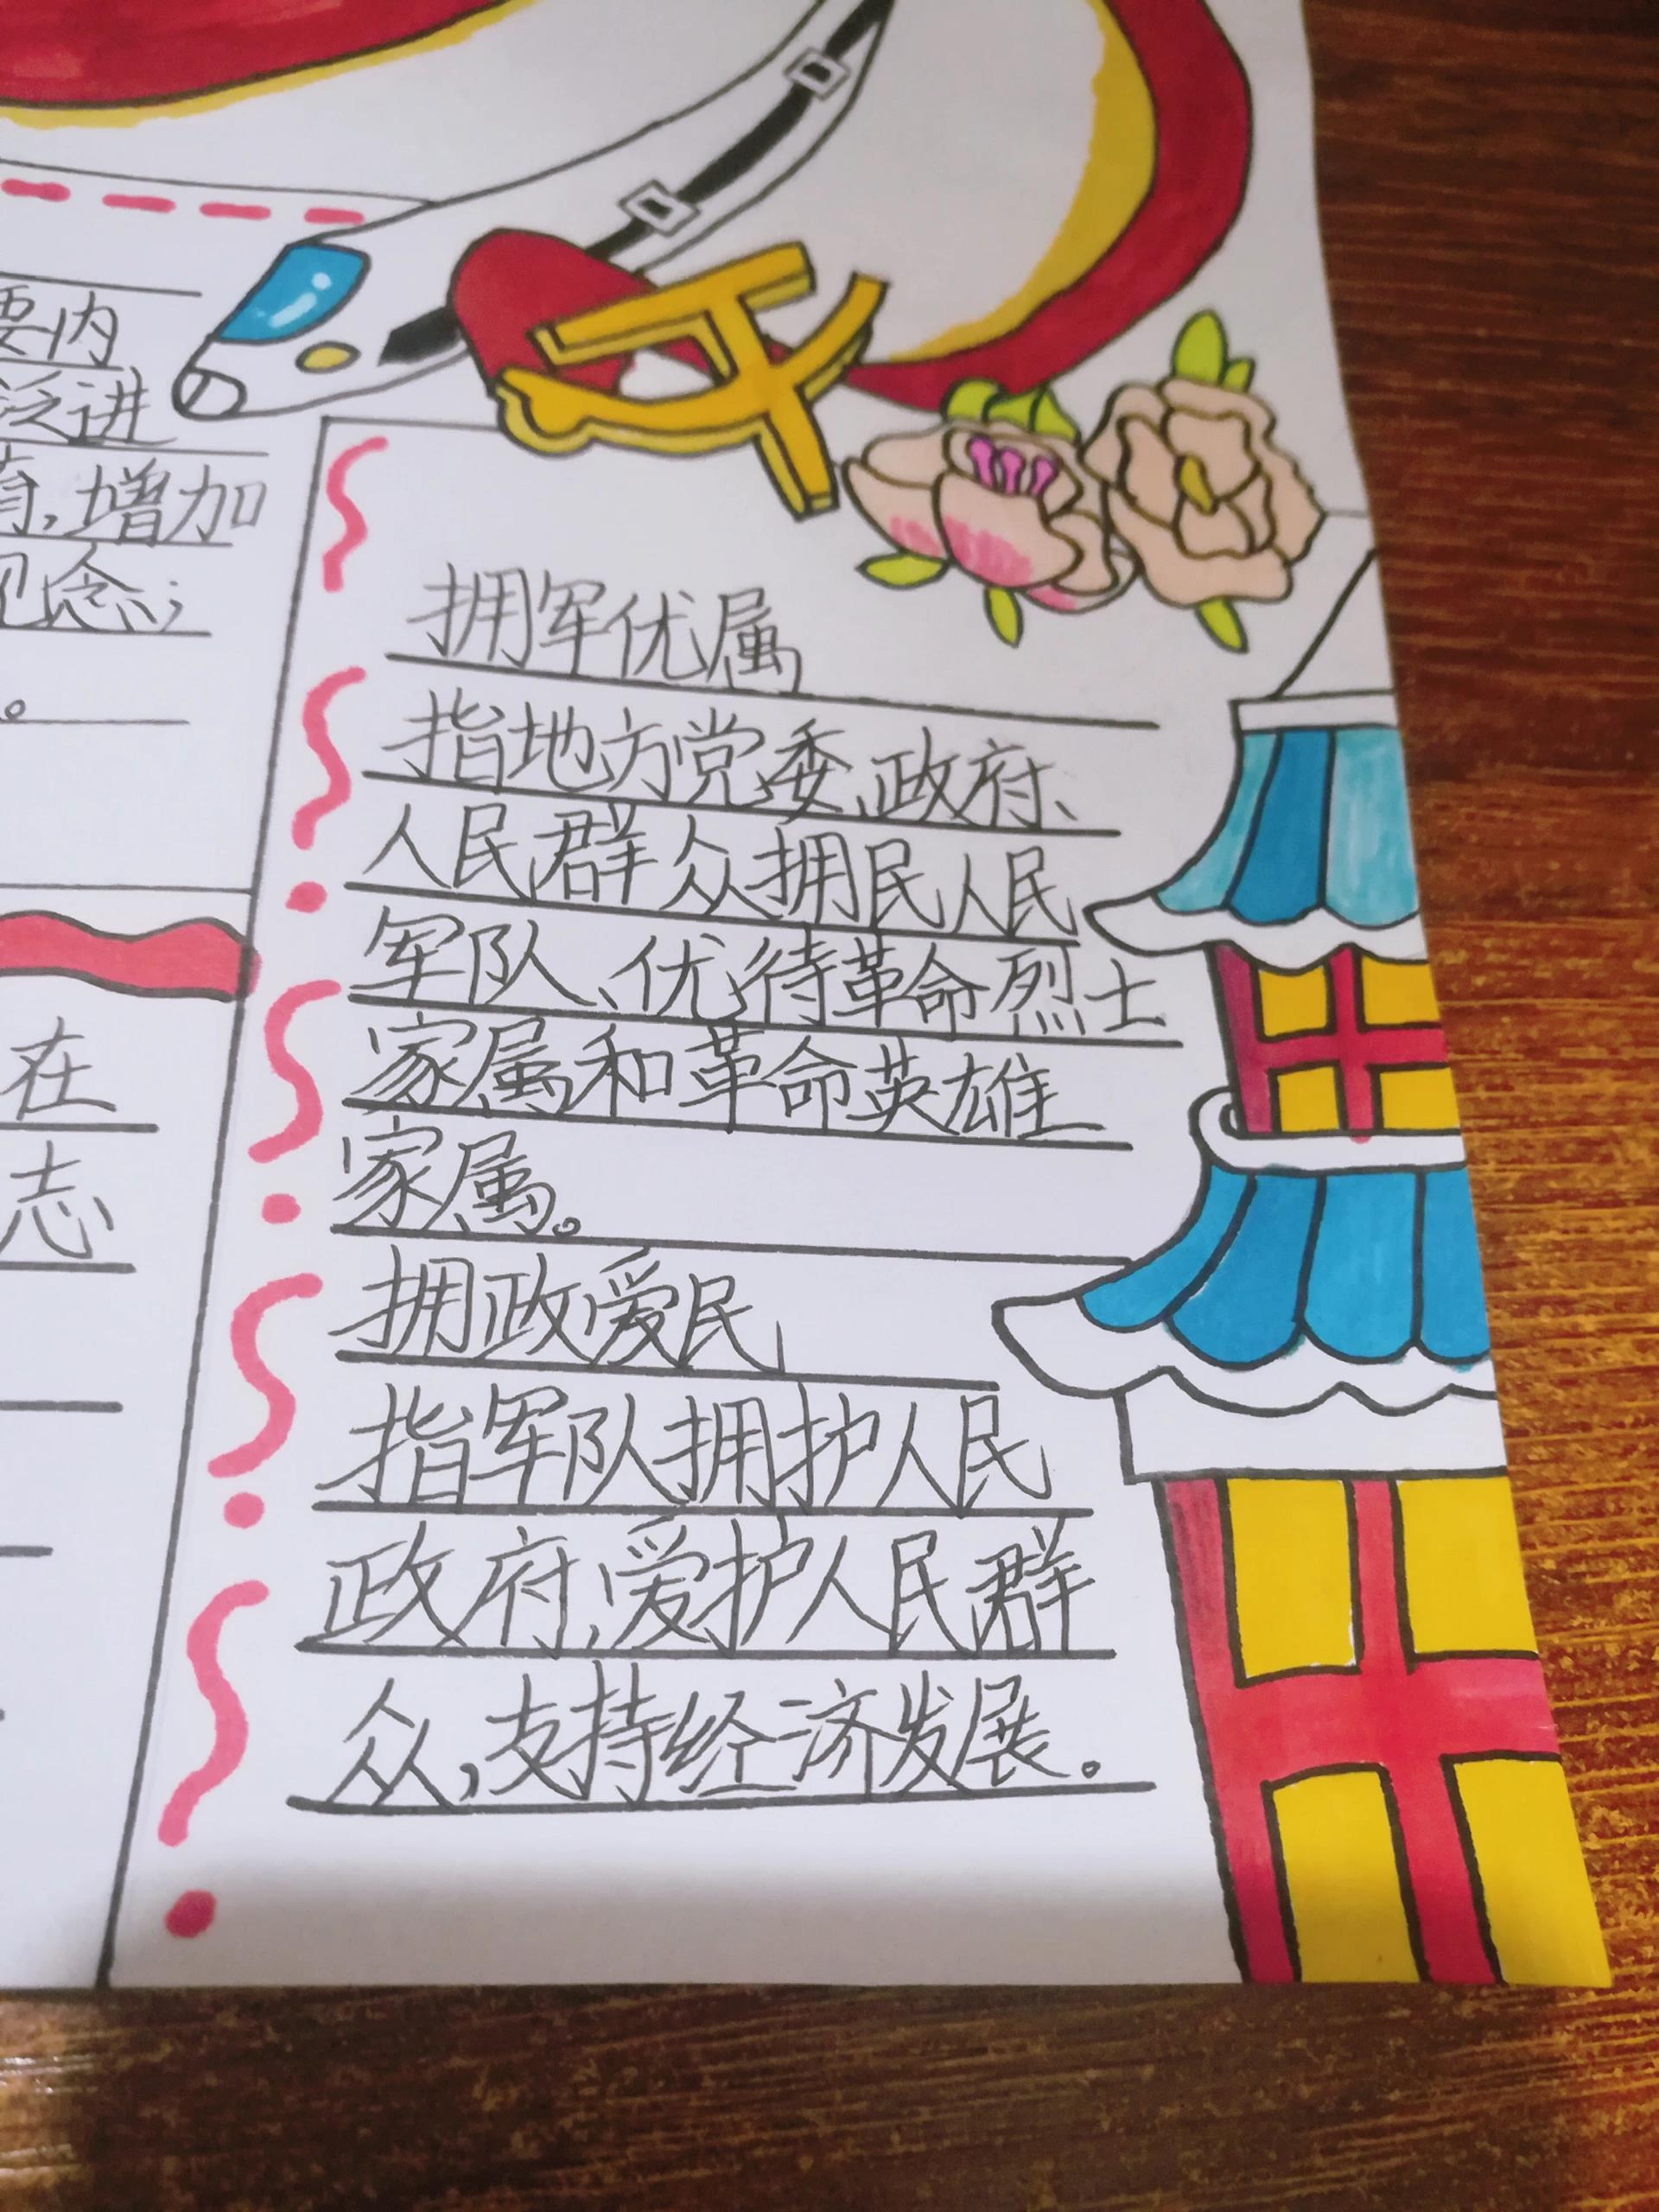 要内
泛进
育,增加
观念;
。
在
志
拥军优属
指地方党委、政府、
人民群众拥民人民
军队、优待革命烈士
家属和革命英雄
家属。
拥政爱民
指军队拥护人民
政府、爱护人民群
众,支持经济发展。